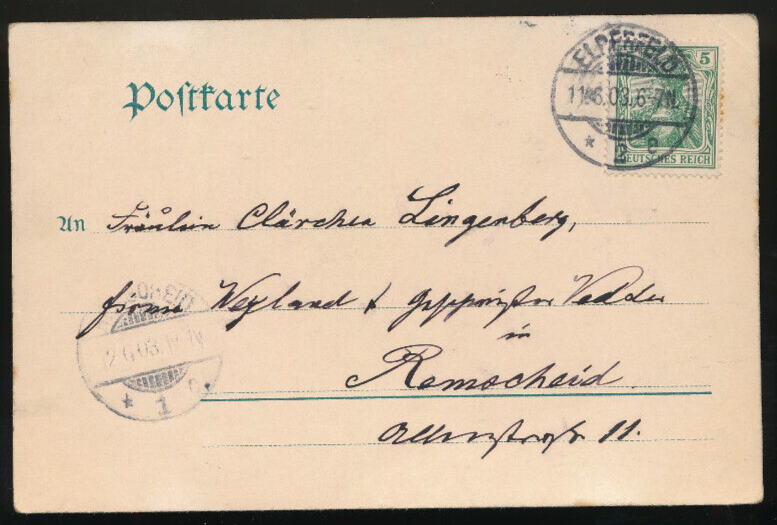 Postkarte
ELBERFELD
11.6.03.6-7N.
* 2 e
5
DEUTSCHES REICH
An Fräulein Clärchen Lingenberg,
Firma Weyland & Geschwister Vedder
in
Remscheid.
11.
* 1